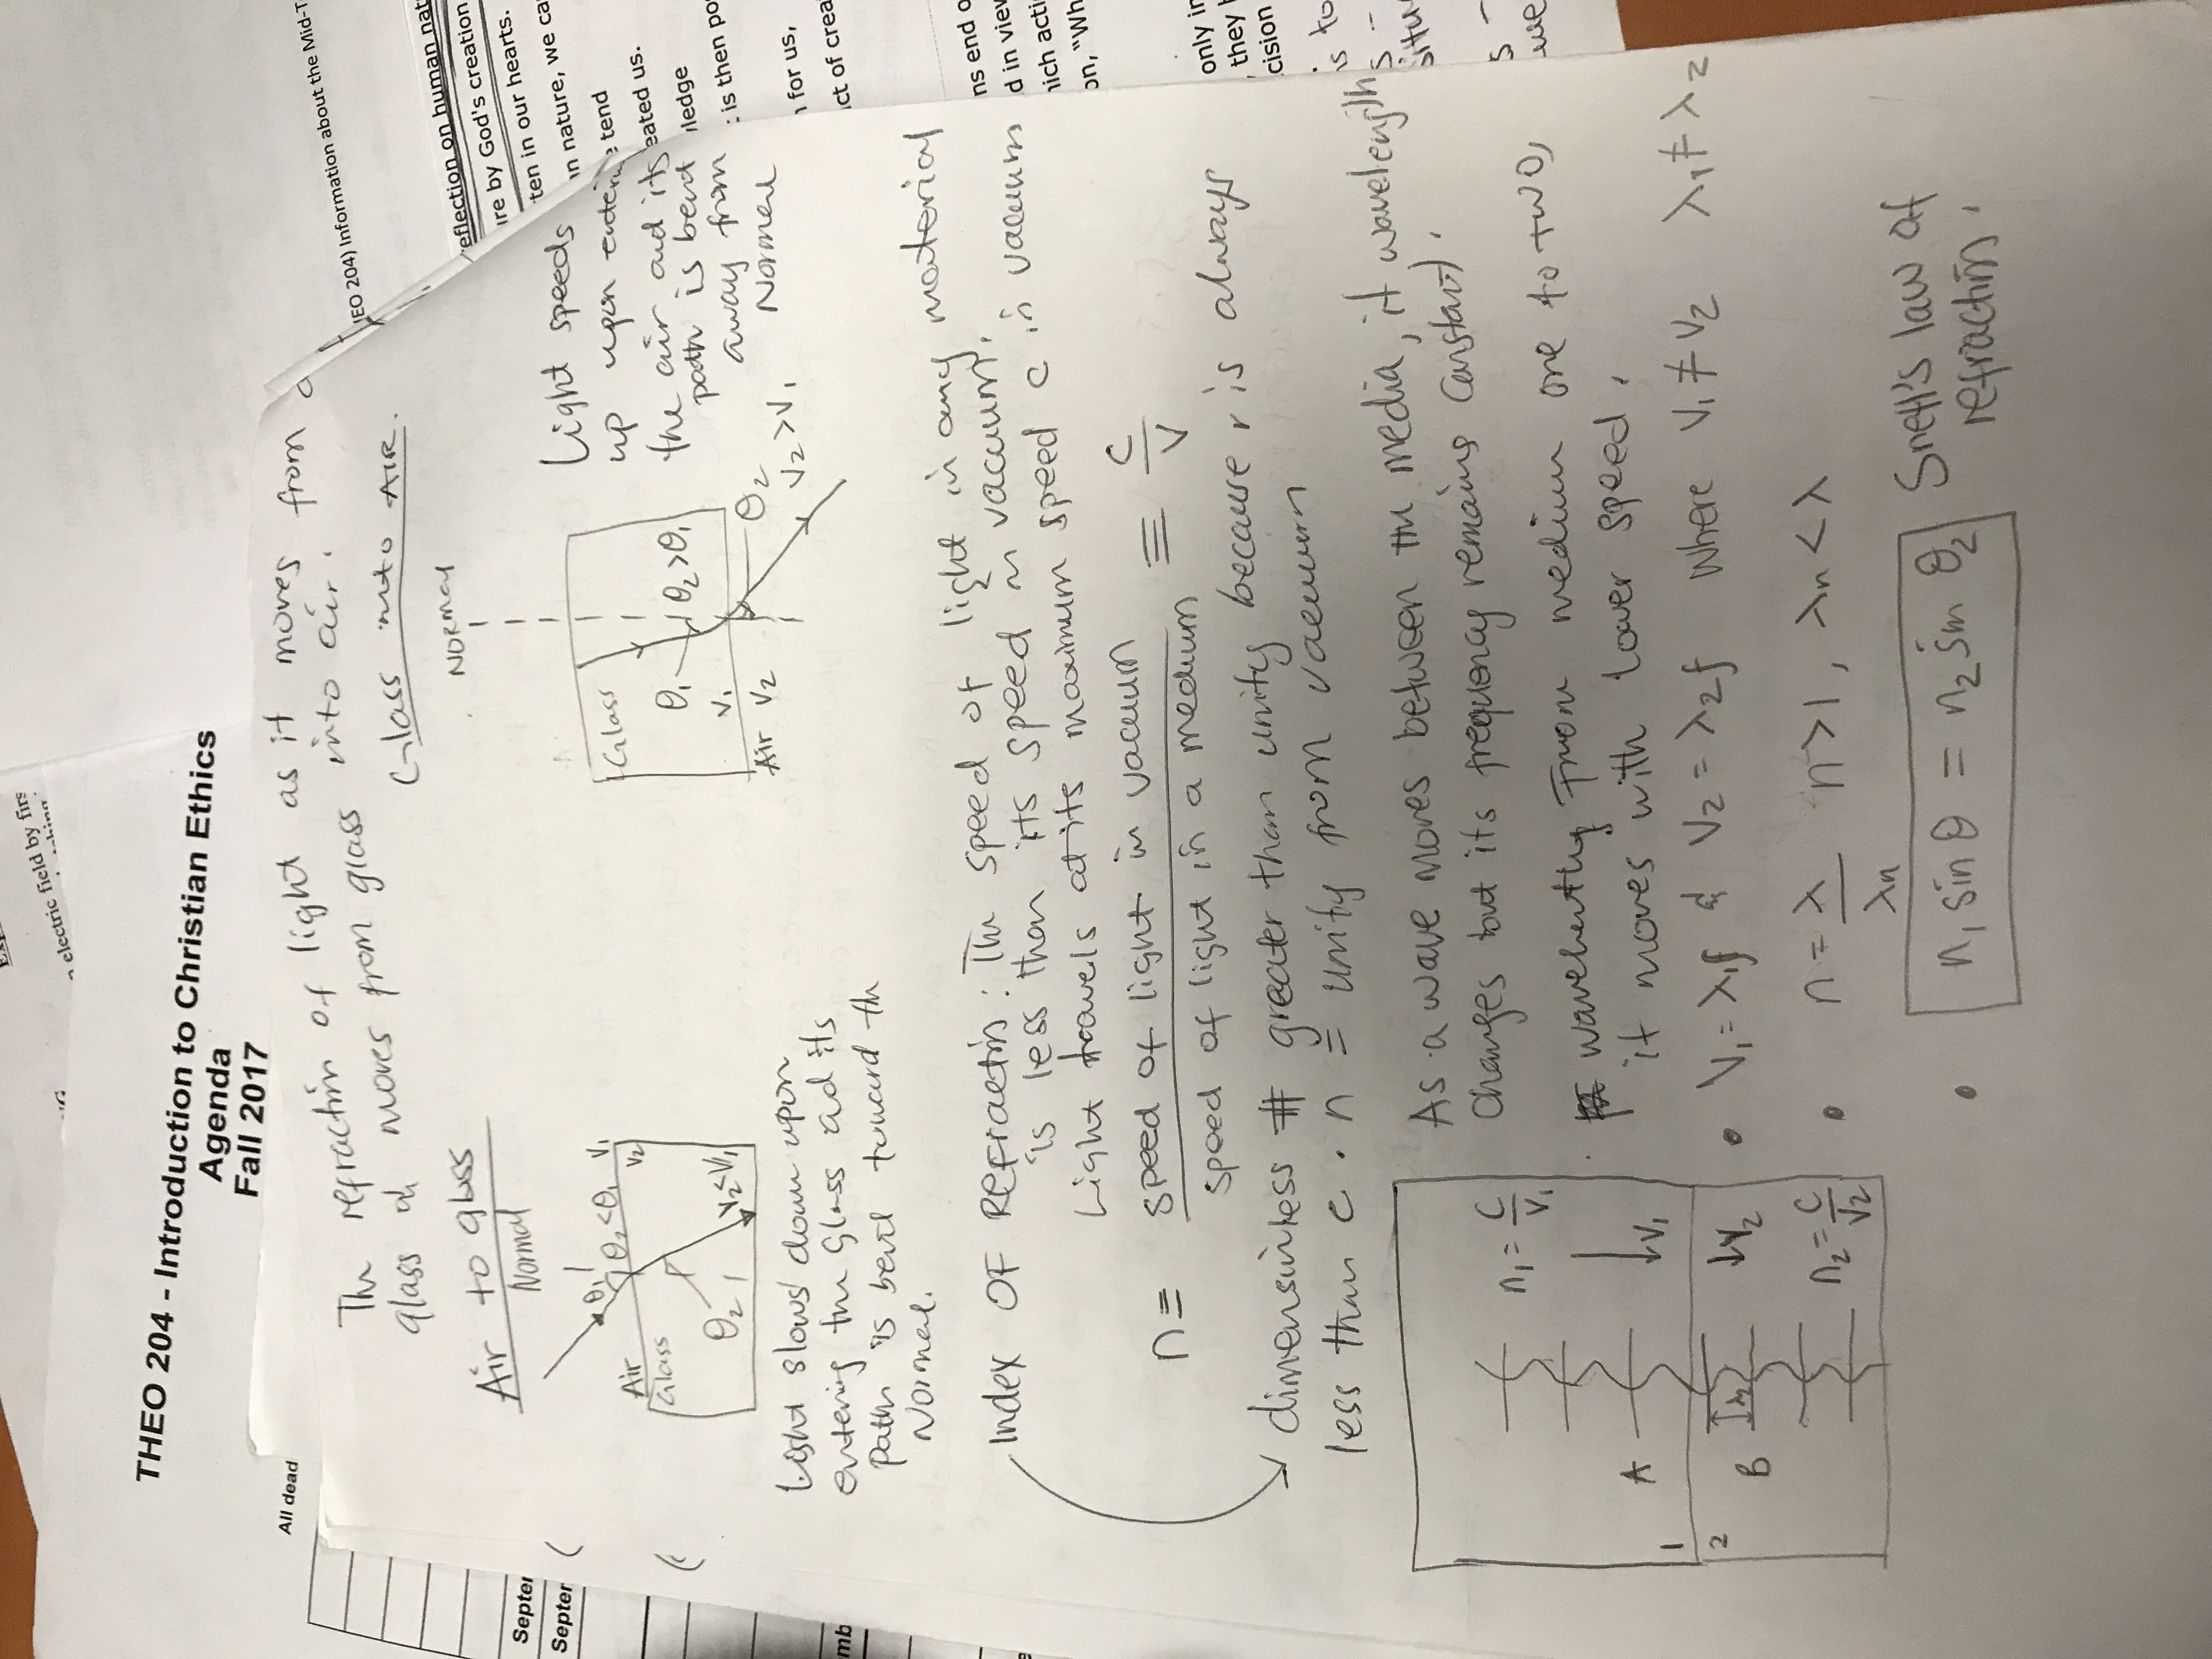 electric field by firs
THEO 204 - Introduction to Christian Ethics
Agenda
Fall 2017
All dead
Septer
Septer
mb
IEO 204) Information about the Mid-T
reflection on human nat
ire by God's creation
ten in our hearts.
in nature, we ca
e tend
eated us.
ledge
t is then po
n for us,
ct of crea
ns end o
d in view
hich acti
on, "Wh
only in
they h
cision
is to
s -
situ
s -
we
The refraction of light as it moves from a
glass d moves from glass into air.
Air to glass
Normal
θ1
θ2<θ1
V1
V2
Air
Glass
θ2
V2<V1
Light slows down upon
entering the Glass ad its
path is bent toward th
Normal.
Glass into AIR.
NORMAL
Glass
θ1
θ2>θ1
V1
Air V2
θ2
V2>V1
Light speeds
up upon enterin
the air and its
path is bent
away from
Normal
Index OF Refractin: The speed of light in any material
is less than its speed in vacuum.
Light travels at its maximum speed c in vacuum
n = speed of light in vacuum ≡ c
speed of light in a medium V
dimensinless # greater than unity because v is always
less than c. n = unity from vacuum
As a wave moves between the media, it wavelength
changes but its frequency remains constant.
wavelenthy From medium one to two,
it moves with lower speed.
n1 = c
V1
A
V1
1
2
B
λ2
V2
n2 = c
V2
• V1 = λ1f & V2 = λ2f where V1 ≠ V2 λ1 ≠ λ2
• n = λ n>1, λn < λ
λn
• n1 sin θ = n2 sin θ2 Snell's law of
refractin.